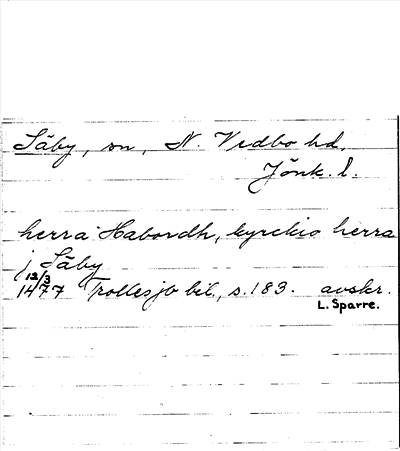 Säby, sn, N. Vedbo hd,
Jönk. l.
herra Habordh, kyrckio herra
j Säby
12/3
1477 Trollesjö bil., s. 183. avskr.
L. Sparre.